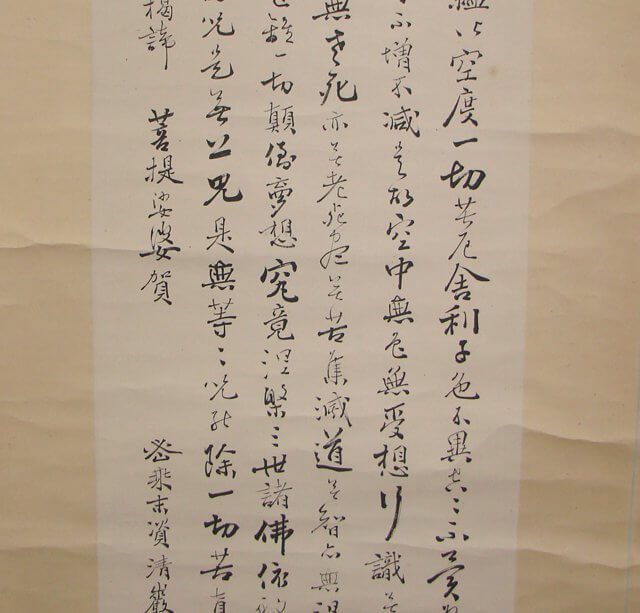 蘊皆空度一切苦厄舍利子色不異空々不異
不增不減是故空中無色無受想行識無
無老死亦無老死盡無苦集滅道無智亦無得
一切顛倒夢想究竟涅槃三世諸佛依
咒是無上咒是無等々咒能除一切苦真
揭諦 菩提娑婆賀
密乘末資清巖